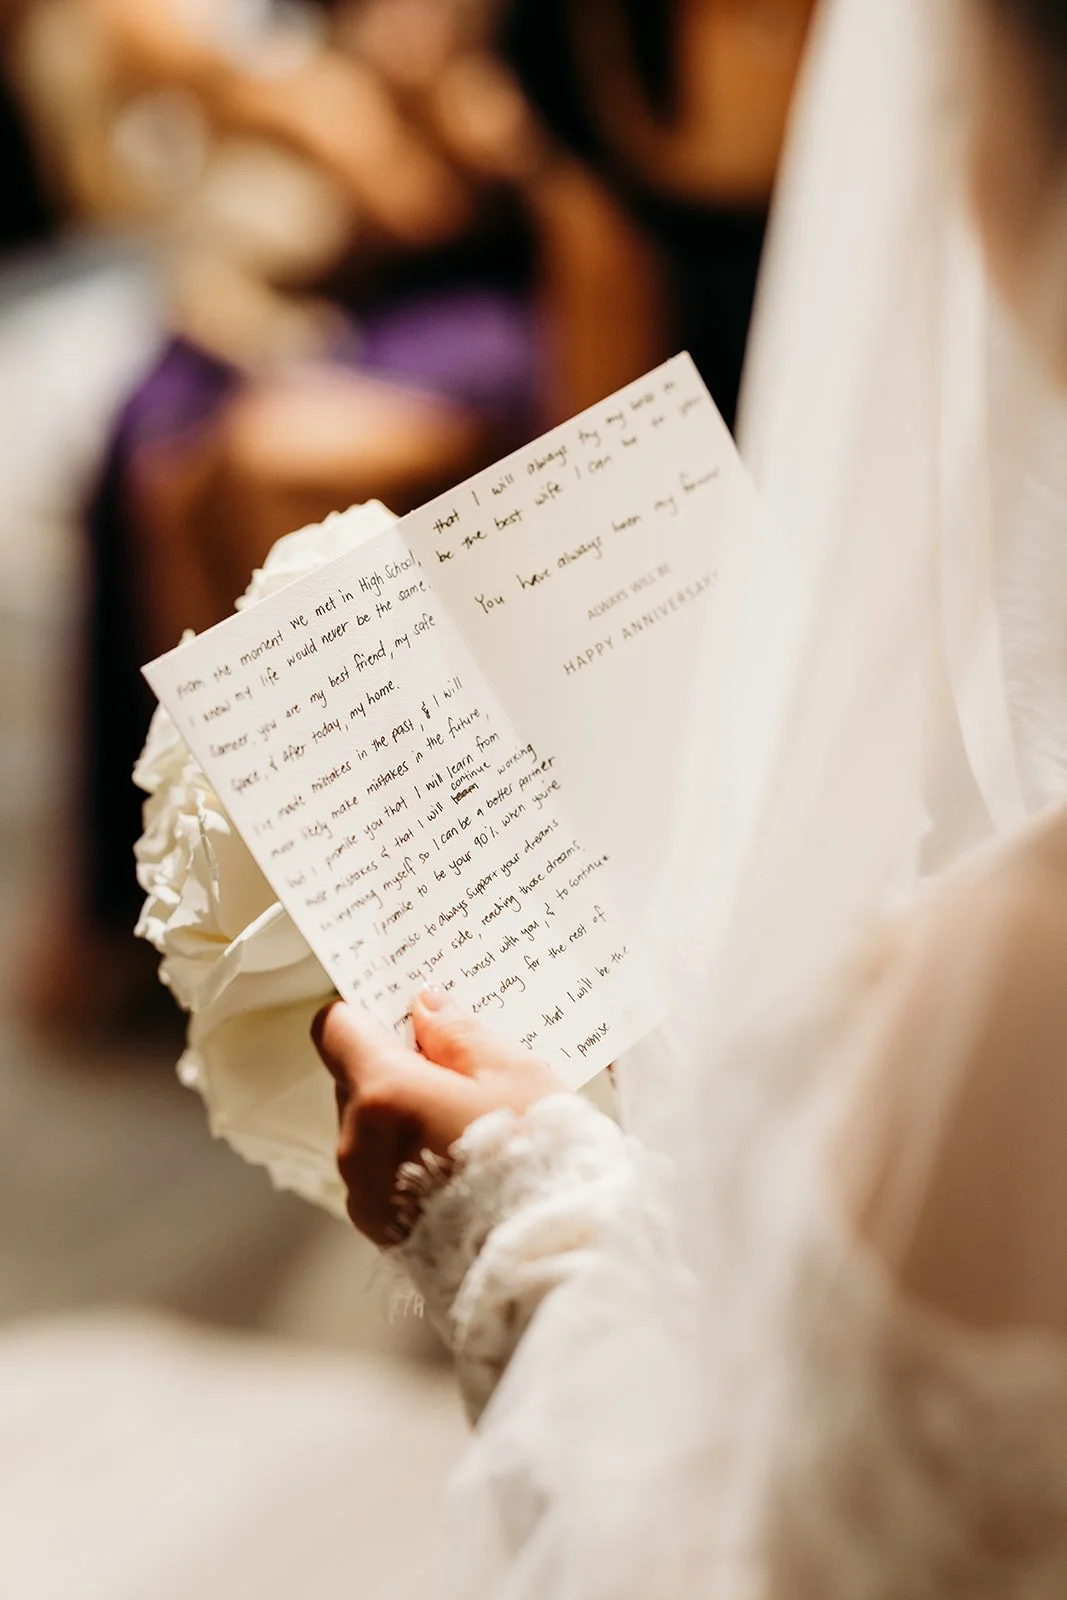 From the moment we met in High School,
I knew my life would never be the same.
you are my best friend, my safe
space, & after today, my home.
I've made mistakes in the past, & I will
most likely make mistakes in the future,
but I promise you that I will learn from
those mistakes & that I will continue working
on improving myself so I can be a better partner
you. I promise to be your 90% when you're
I promise to always support your dreams
be by your side, reaching those dreams.
be honest with you, & to continue
everyday for the rest of
you that I will be the
I promise
that I will always try my best to
be the best wife I can be to you
You have always been my
ALWAYS WILL BE
HAPPY ANNIVERSARY